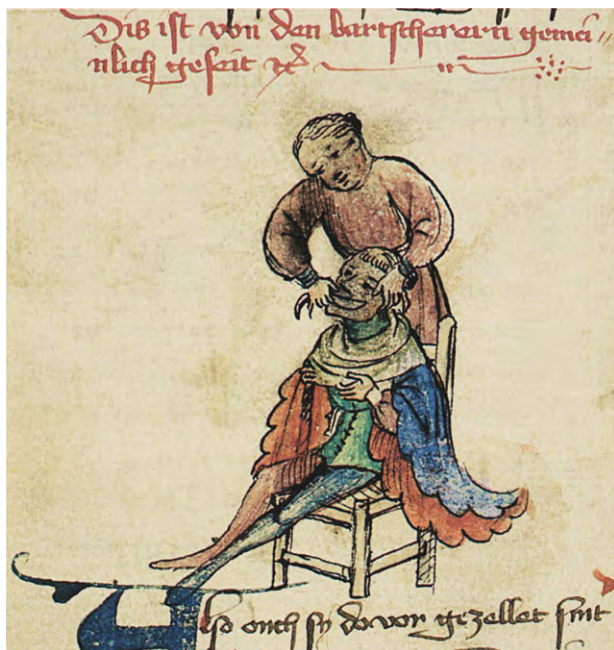 Dis ist von den bartscherern gemei//
nlich geseit ⁊c̃
Also ouch sy do vor gezellet sint